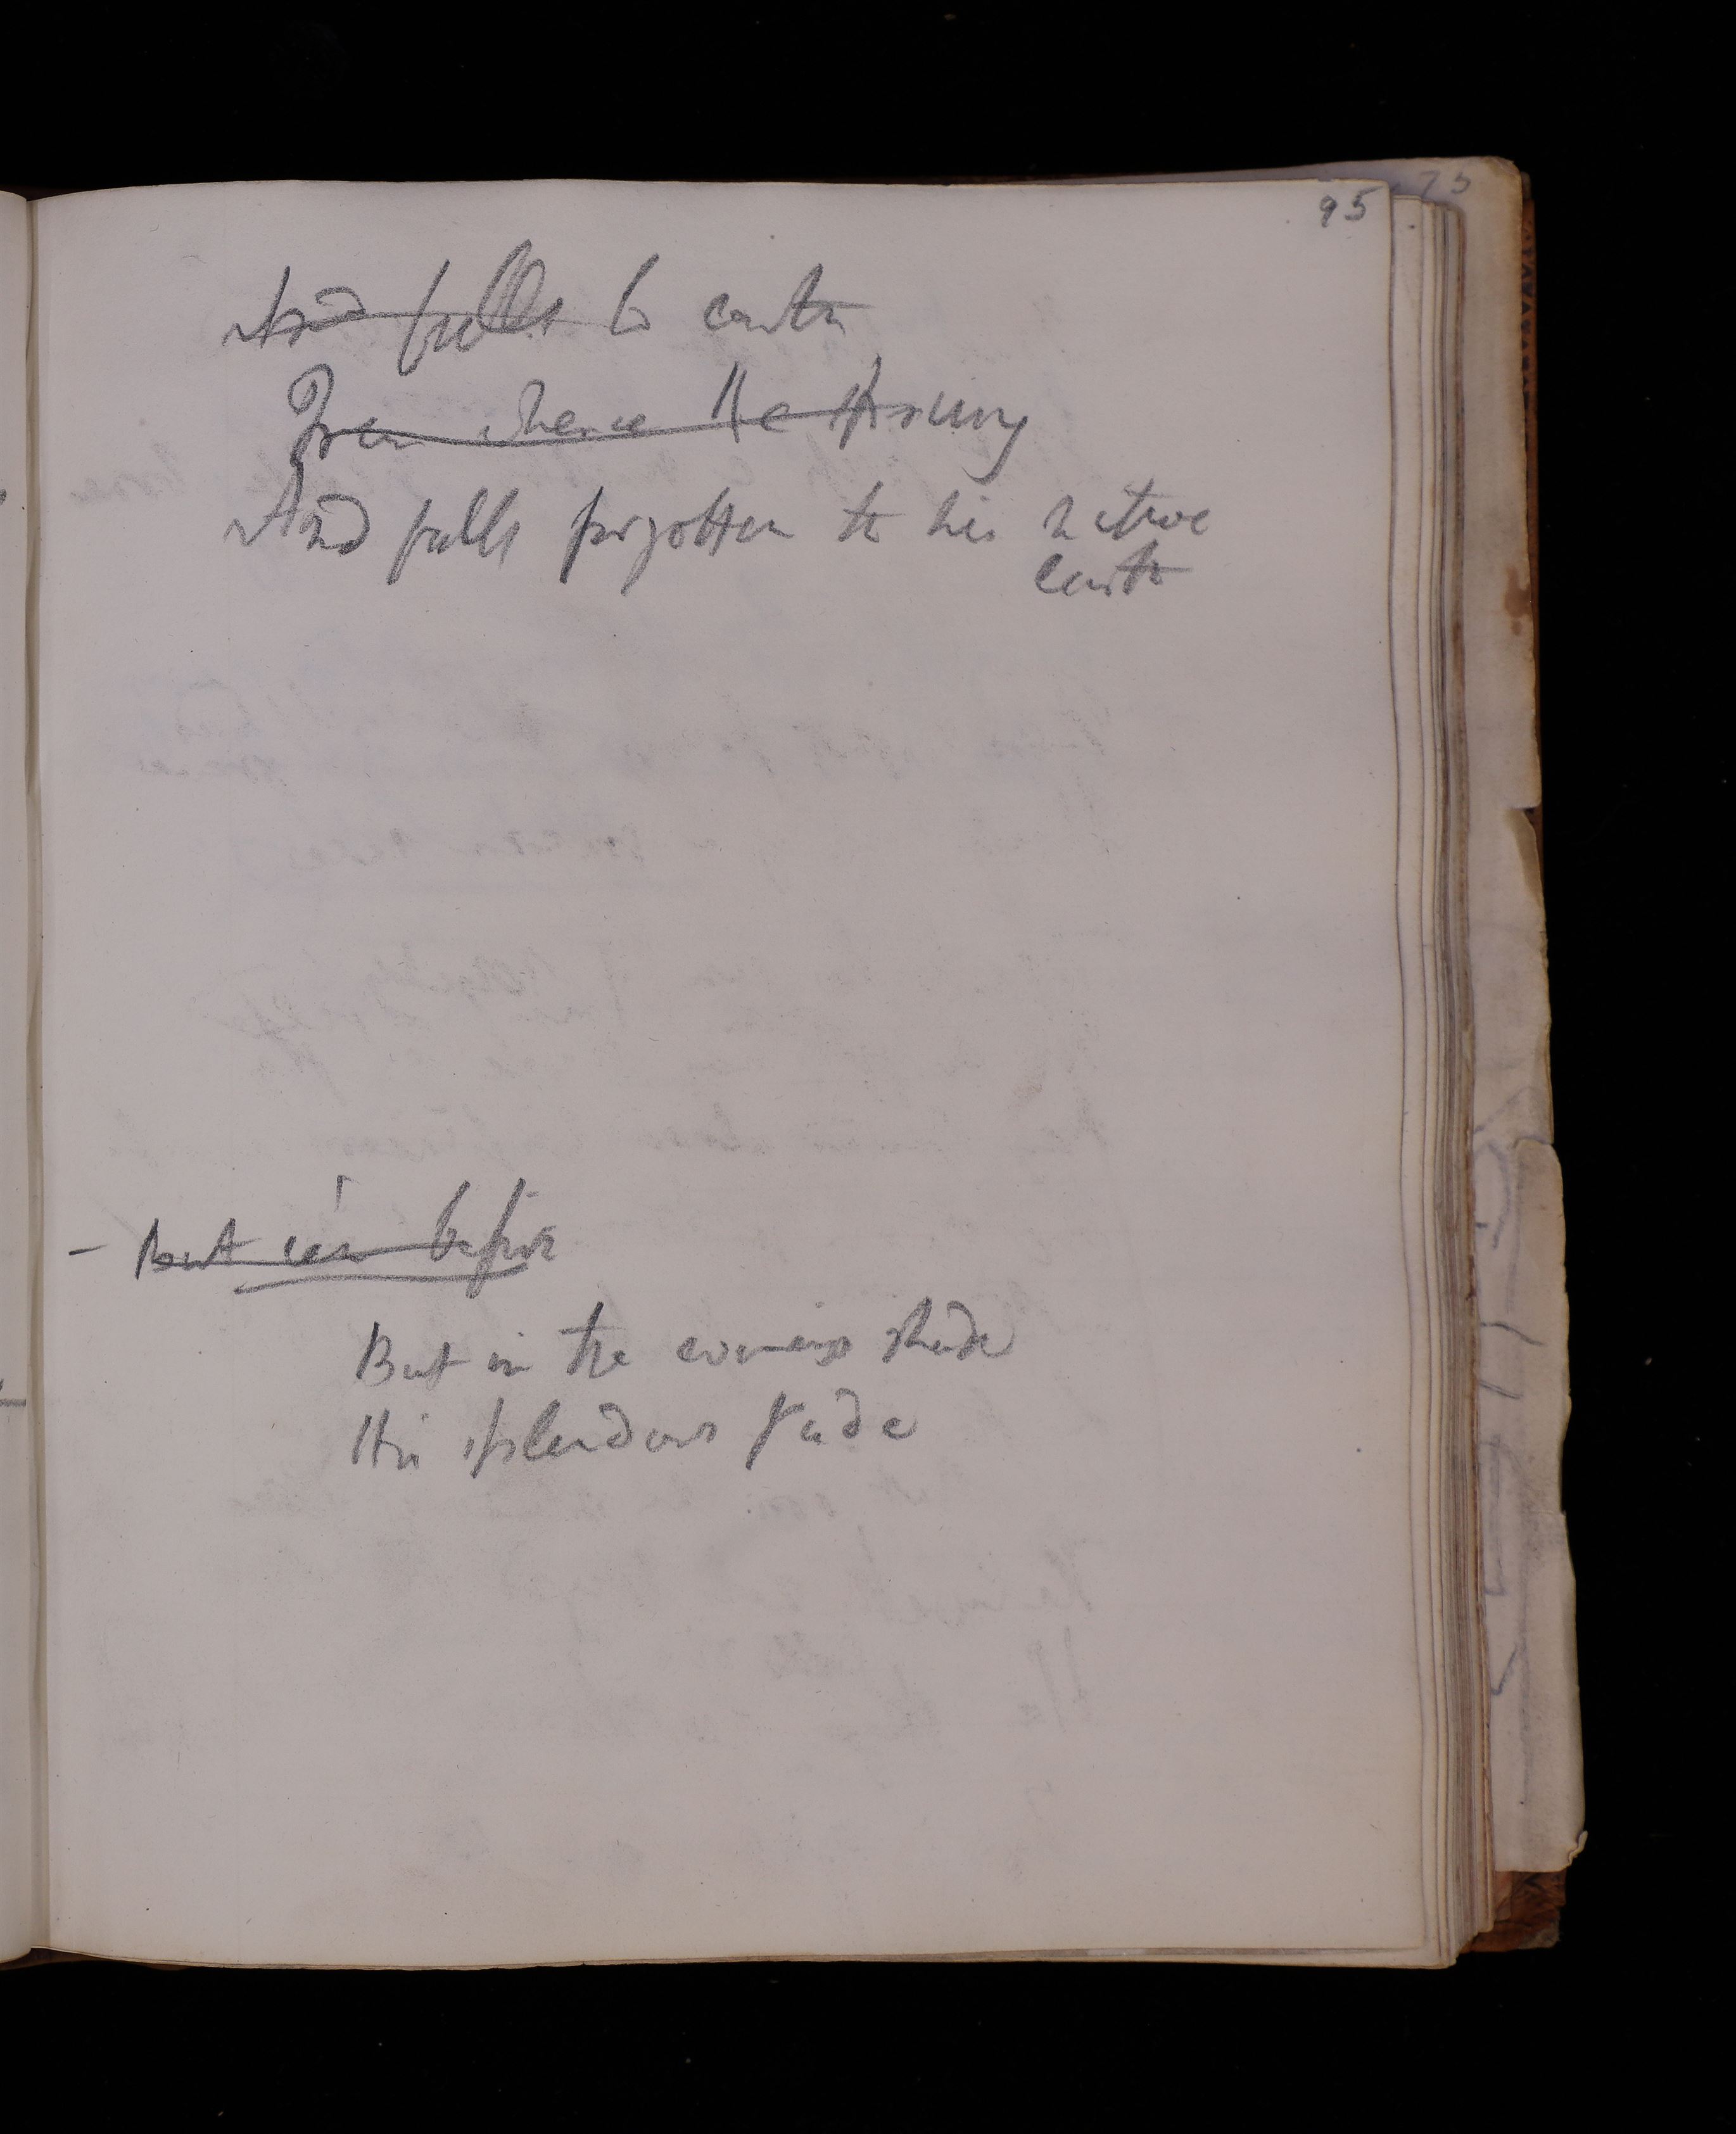 95
And falls to earth
From whence He sprung
And falls forgotten to his native
earth
- But ien before
But in the evenings shade
His splendours fade